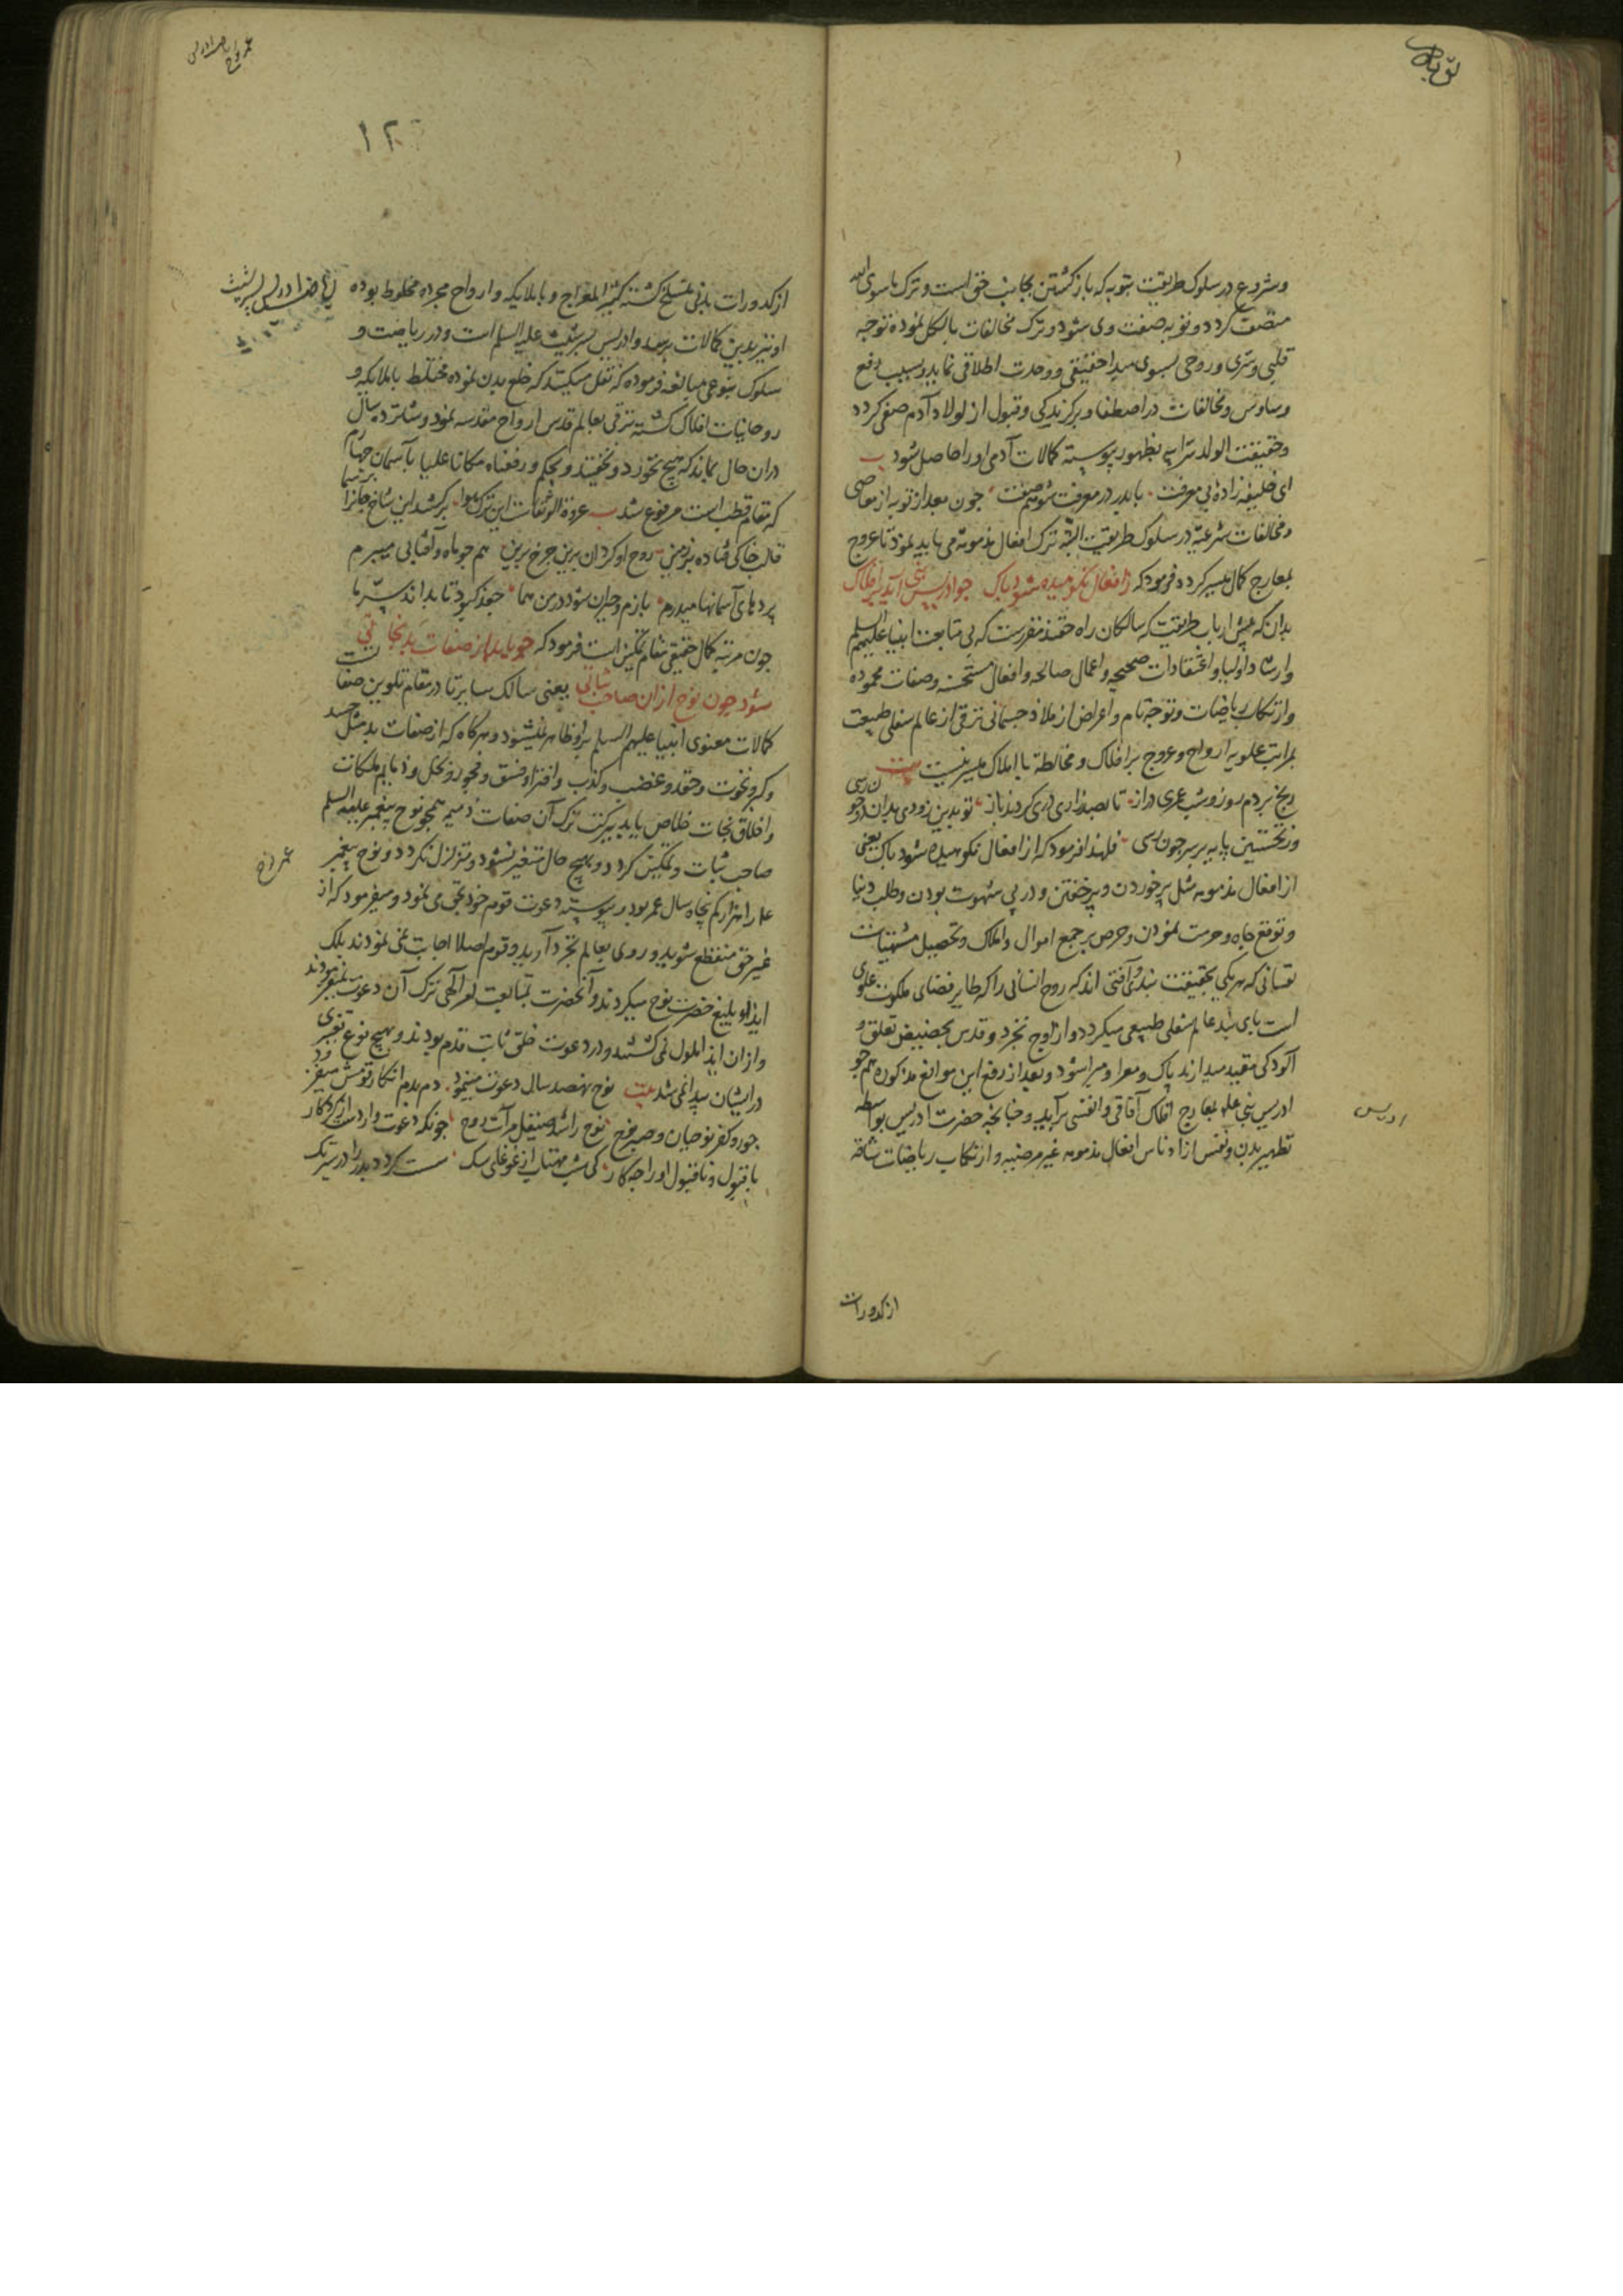 وشروع در سلوک طریقت بتوبه که بازگشتن بجانب حق است و ترک ماسوی الله
متصف کردد و توبه صفت وی شود و ترک مخالفات بالکل نموده توجه
قلبی و سری و روحی بسوی مبدا حقیقی و وحدت اطلاقی نماید و بسبب دفع
وساوس و مخالفات در اصطفا و برکزیدکی و قبول از اولاد آدم صفی کردد
و حقیقت الولد سر ابیه بظهور پیوسته کمالات آدمی او را حاصل شود
ای خلیفه زاده بی معرفت با پدر در معرفت شو هم صفت چون بعد از توبه از معاصی
و مخالفات شرعیه در سلوک طریقت البته ترک افعال مذمومه می باید نمود تا عروج
بمعارج کمال میسر کردد فرمود که ز افعال نکوهیده شود پاک چو ادریس نبی آید بر افلاک
بدان که پیش ارباب طریقت که سالکان راه حقند مقررست که بی متابعت انبیا علیهم السلم
و ارشاد اولیا و اعتقادات صحیحه و اعمال صالحه و افعال مستحسنه و صفات محموده
و ارتکاب ریاضات و توجه تام و اعراض از ملاذ جسمانی ترقی از عالم سفلی طبیعت
بمراتب علویه ارواح و عروج بر افلاک و مخالطة با املاک میسر نیست بیت
رنج بردم روز و شب عمری دراز تا بصد زاری دری کردند باز تو بدین زودی بدان در چون رسی
وز نخستین پایه بر سر چون رسی فلهذا فرمود که از افعال نکوهیده شود پاک یعنی
از افعال مذمومه مثل پر خوردن و پر خفتن و در پی شهوت بودن و طلب دنیا
و توقع جاه و حرمت نمودن و حرص بر جمع اموال و املاک و تحصیل مشتهیات
نفسانی که هر یکی بحقیقت بند و آفتی اند که روح انسانی را که طایر فضای ملکوت علوی
است پای بند عالم سفلی طبیعی میکردد و از اوج تجرد و قدس بحضیض تعلق و
آلودکی مقید میسازند پاک و معرا و مبرا شود و بعد از رفع این موانع مذکوره هم چو
ادریس نبی علم بمعارج افلاک آفاقی و انفسی برآید و چنانچه حضرت ادریس بواسطه
تطهیر بدن و نفس از ادناس افعال مذمومه غیر مرضیه و ارتکاب ریاضات شاقه
ادریس
از کدورات
از کدورات بدنی منسلخ کشته کثیر المعراج و با ملایکه و ارواح مجرده مخلوط بوده
او نیز بدین کمالات برسد و ادریس پسر شیث علیه السلم است و در ریاضت و
سلوک بنوعی مبالغه فرموده که نقل میکنند که خلع بدن نموده مختلط با ملایکه و
روحانیات افلاک کشته ترقی بعالم قدس ارواح مقدسه نمود و شانزده سال
دران حال بماند که هیچ نخورد و نخفتند و بحکم و رفعناه مکانا علیا بآسمان چهارم
که مقام قطب است مرفوع شد عروة الوثقات این ترک هوا برکشد این شاخ جانرا بر سما
قالب خاکی فتاده بر زمین روح او کردان برین چرخ برین هم چو ماه و آفتابی میپرم
پردهای آسمانها میدرم بازم و حیران شود در من هما جغد کبود تا بداند سر ما
چون مرتبه کمال حقیقی مقام تمکین است فرمود که چو یابد از صفات بد نجاتی
شود چون نوح از ان صاحب ثباتی یعنی سالک سایر تا در مقام تلوین صفات است
کمالات معنوی انبیا علیهم السلم برو ظاهر نمیشود و هرکاه که از صفات بد مثل حسد
و کبر و نخوت و حقد و غضب و کذب و افترا و فسق و فجور و بخل و ذمایم ملکات
و اخلاق نجات خلاص یابد ببرکت ترک آن صفات ذمیمه همچو نوح پیغمبر علیه السلم
صاحب ثبات و تمکین کردد و بهیچ حال متغیر نشود و متزلزل نکردد و نوح پیغمبر
علم را هزار کم پنجاه سال عمر بود و پیوسته دعوت قوم خود بحق می نمود و میفرمود که از
غیر حق منقطع شوید و روی بعالم تجرد آرید و قوم اصلا اجابت نمی نمودند بلک
ایذاء بلیغ حضرت نوح میکردند و آنحضرت بمتابعت امر آلهی ترک آن دعوت نمیفرمودند
و ازان ایذا ملول نمی کشتند و در دعوت خلق ثابت قدم بودند و بهیچ نوع تغیری
در ایشان پیدا نمی شد بیت نوح نهصد سال دعوت مینمود دم بدم انکار قومش میفزود
جور و کفر نوحیان و صبر نوح نوح را شد صیقل مرآت روح چونکه دعوت وارد است از کردکار
با قبول و ناقبول او را چه کار کی شب مهتاب از غوغای سک سست کردد بدر را در سیر تک
عمر نوح